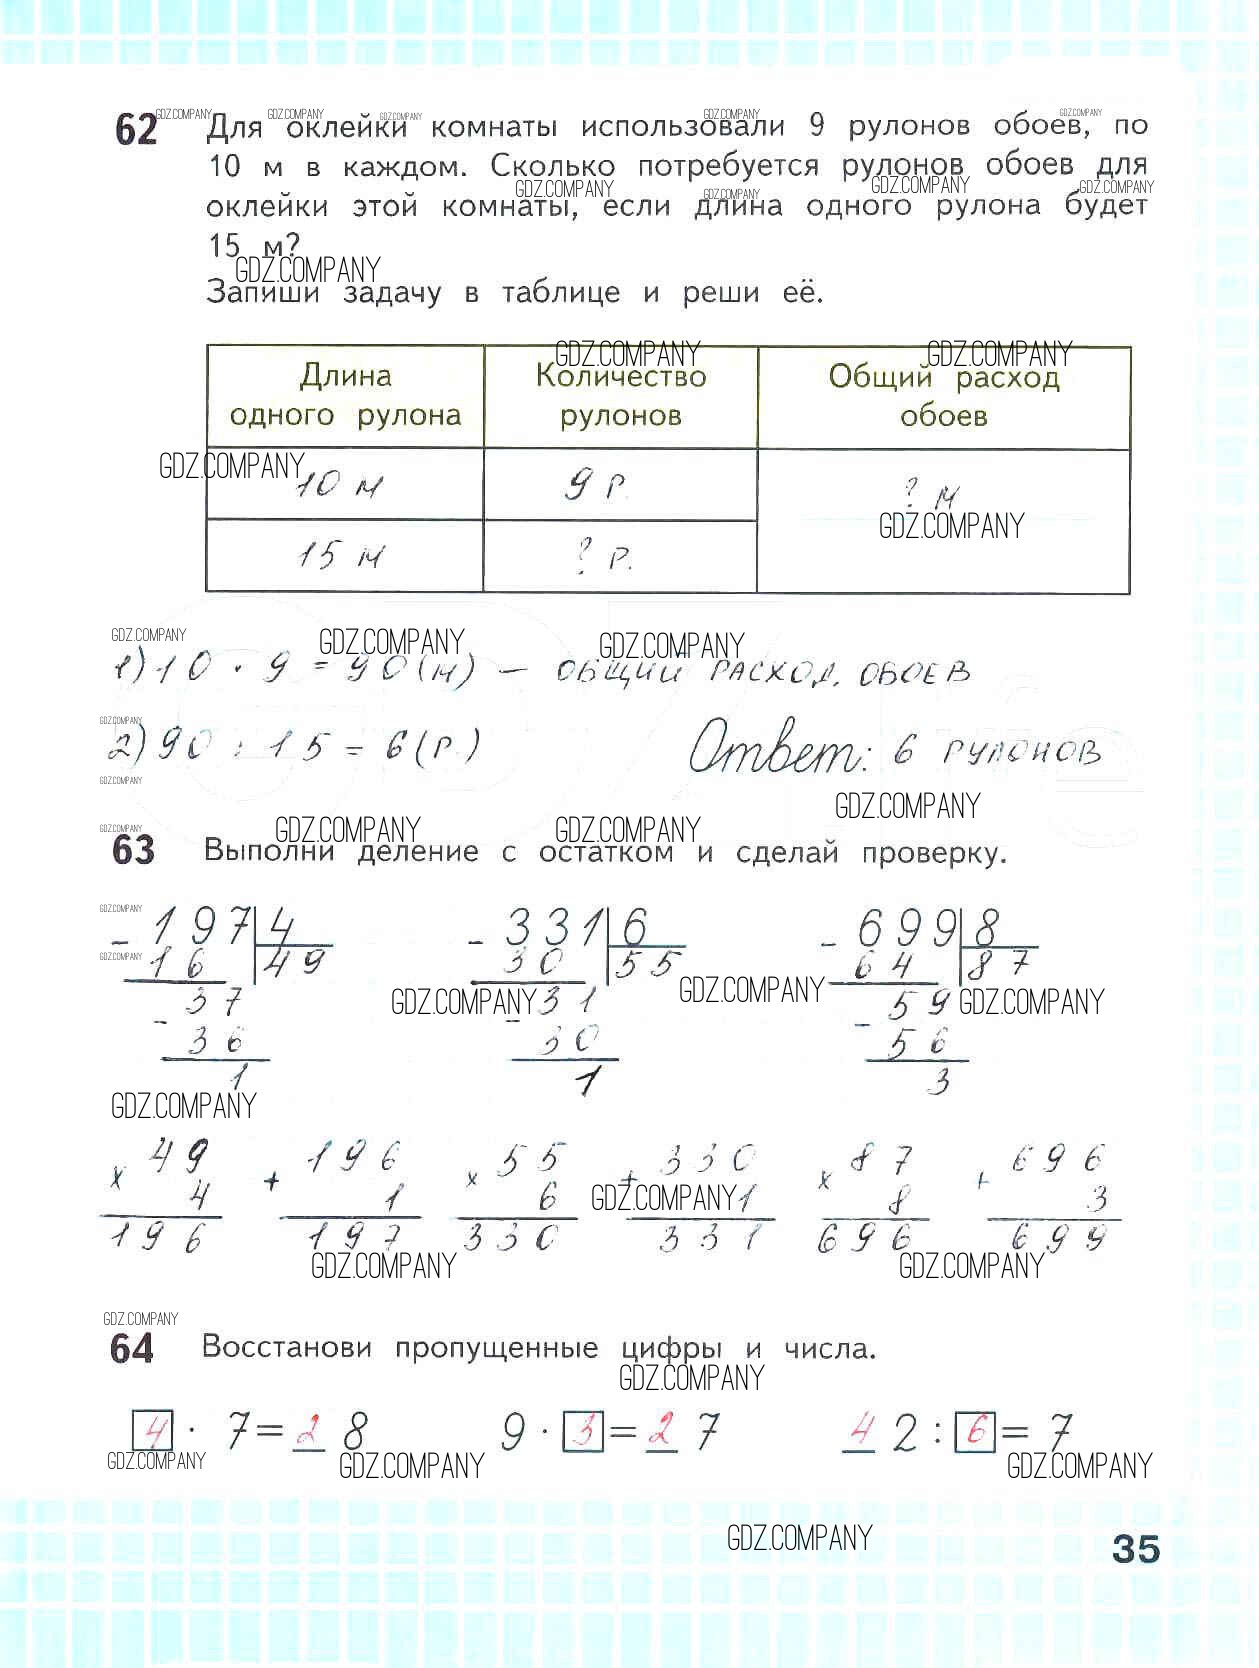 62 Для оклейки комнаты использовали 9 рулонов обоев, по
10 м в каждом. Сколько потребуется рулонов обоев для
оклейки этой комнаты, если длина одного рулона будет
15 м?
Запиши задачу в таблице и реши её.
Длина одного рулона | Количество рулонов | Общий расход обоев
10 м | 9 р. | ? м
15 м | ? р.
1) 10 · 9 = 90 (м) — ОБЩИЙ РАСХОД. ОБОЕВ
2) 90 : 15 = 6 (р.) Ответ: 6 РУЛОНОВ
63 Выполни деление с остатком и сделай проверку.
- 197 | 4 - 331 | 6 - 699 | 8
16 | 49 30 | 55 64 | 87
37 31 59
- 36 - 30 - 56
1 1 3
49 196 55 330 87 696
x 4 + 1 x 6 + 1 x 8 + 3
196 197 330 331 696 699
64 Восстанови пропущенные цифры и числа.
4 · 7 = 2 8 9 · 3 = 2 7 4 2 : 6 = 7
35
GDZ.COMPANY